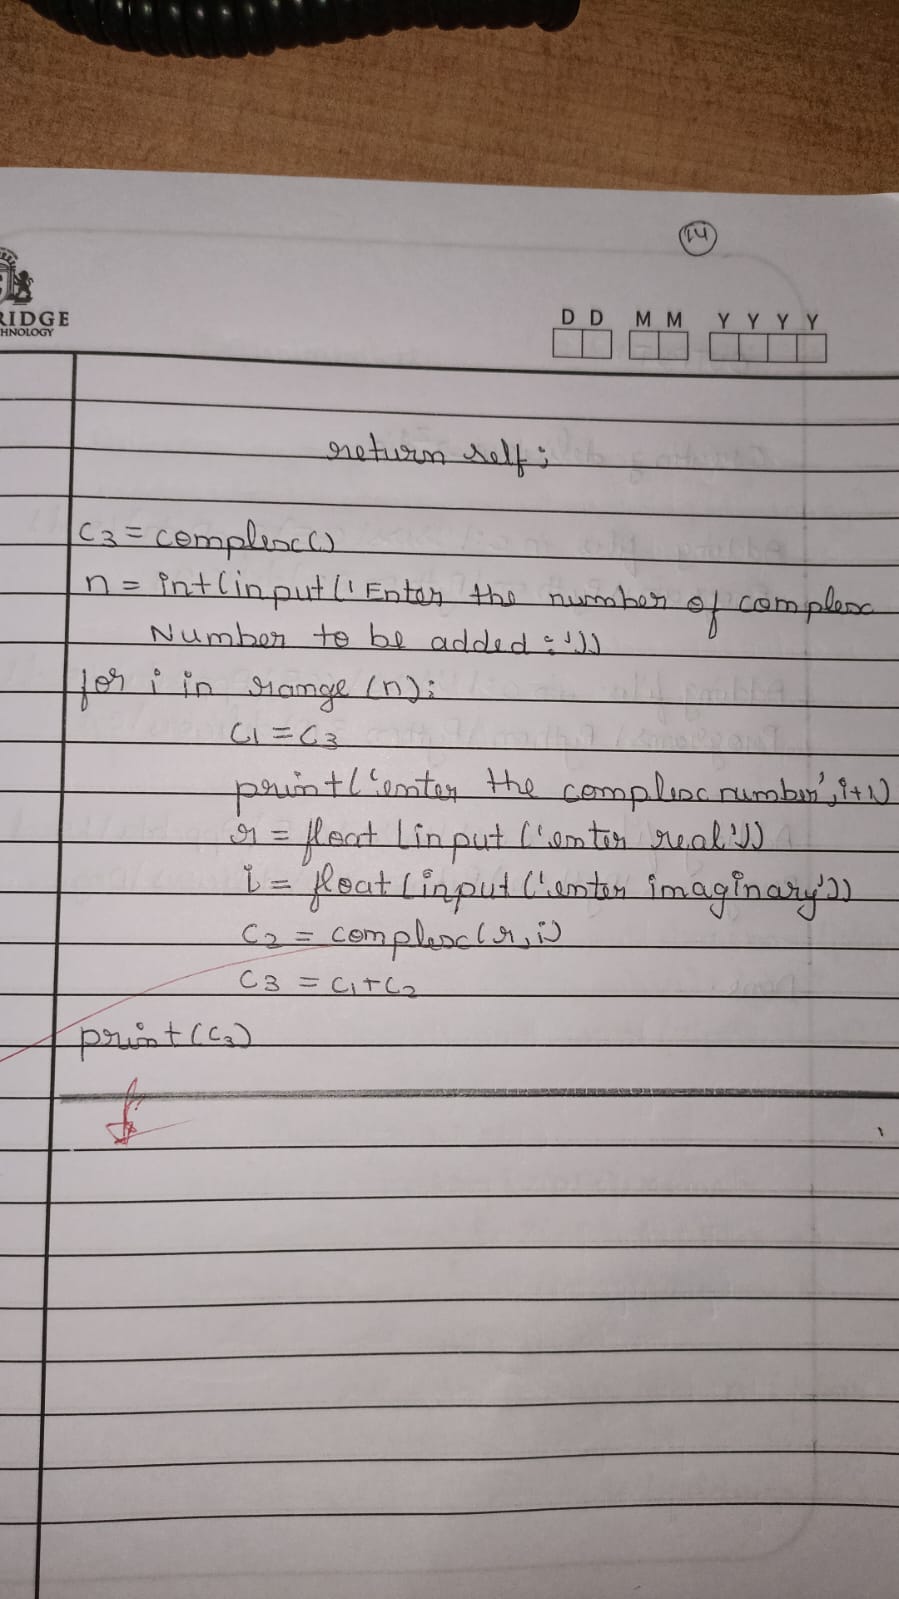 14
RIDGE
HNOLOGY
D D M M Y Y Y Y
return self;
C3 = complex()
n = int(input('Enter the number of complex
Number to be added:'))
for i in range (n):
C1 = C3
print('enter the complex number', i+1)
r = float (input ('enter real'))
i = float (input ('enter imaginary'))
C2 = complex(r,i)
C3 = C1+C2
print(C3)